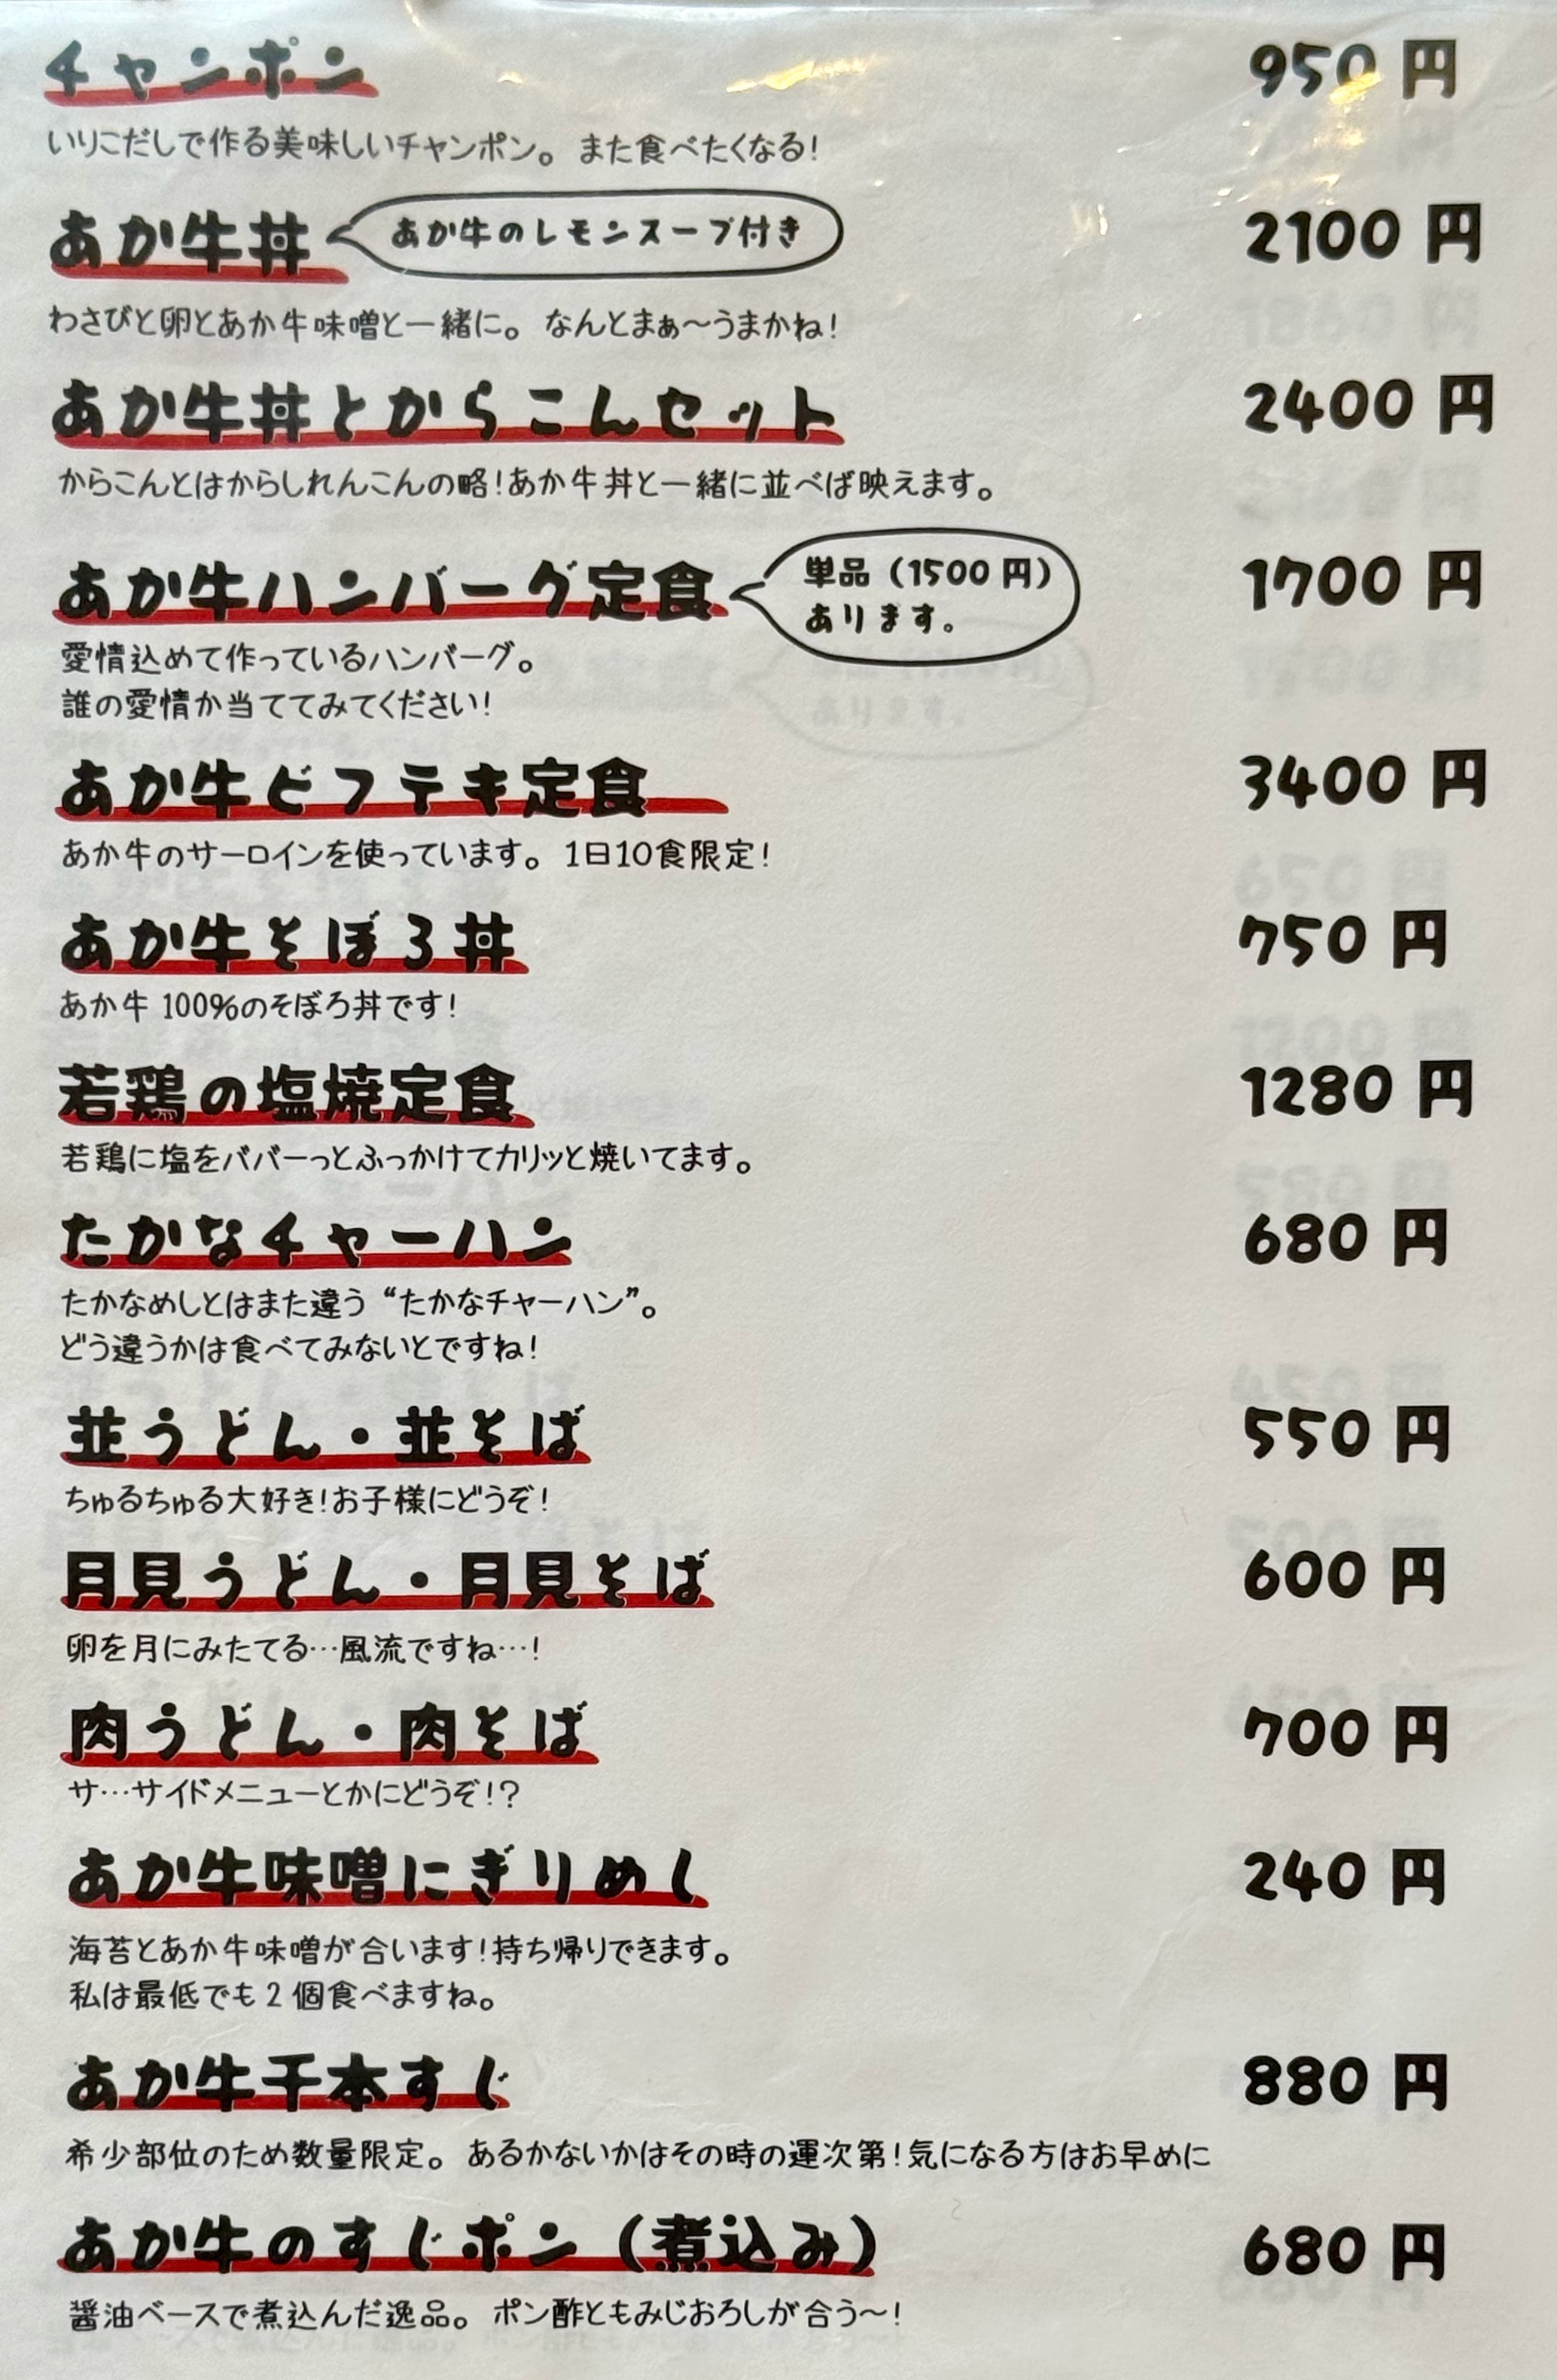 チャンポン 950円
いりこだしで作る美味しいチャンポン。また食べたくなる!
あか牛丼 あか牛のレモンスープ付き 2100円
わさびと卵とあか牛味噌と一緒に。なんとまぁ～うまかね!
あか牛丼とからこんセット 2400円
からこんとはからしれんこんの略!あか牛丼と一緒に並べば映えます。
あか牛ハンバーグ定食 1700円
単品(1500円)
あります。
愛情込めて作っているハンバーグ。
誰の愛情か当ててみてください!
あか牛ビフテキ定食 3400円
あか牛のサーロインを使っています。1日10食限定!
あか牛そぼろ丼 750円
あか牛100%のそぼろ丼です!
若鶏の塩焼定食 1280円
若鶏に塩をババーっとふっかけてカリッと焼いてます。
たかなチャーハン 680円
たかなめしとはまた違う“たかなチャーハン”。
どう違うかは食べてみないとですね!
並うどん・並そば 550円
ちゅるちゅる大好き!お子様にどうぞ!
月見うどん・月見そば 600円
卵を月にみたてる…風流ですね…!
肉うどん・肉そば 700円
サ…サイドメニューとかにどうぞ!?
あか牛味噌にぎりめし 240円
海苔とあか牛味噌が合います!持ち帰りできます。
私は最低でも2個食べますね。
あか牛千本すじ 880円
希少部位のため数量限定。あるかないかはその時の運次第!気になる方はお早めに
あか牛のすじポン(煮込み) 680円
醤油ベースで煮込んだ逸品。ポン酢ともみじおろしが合う～!